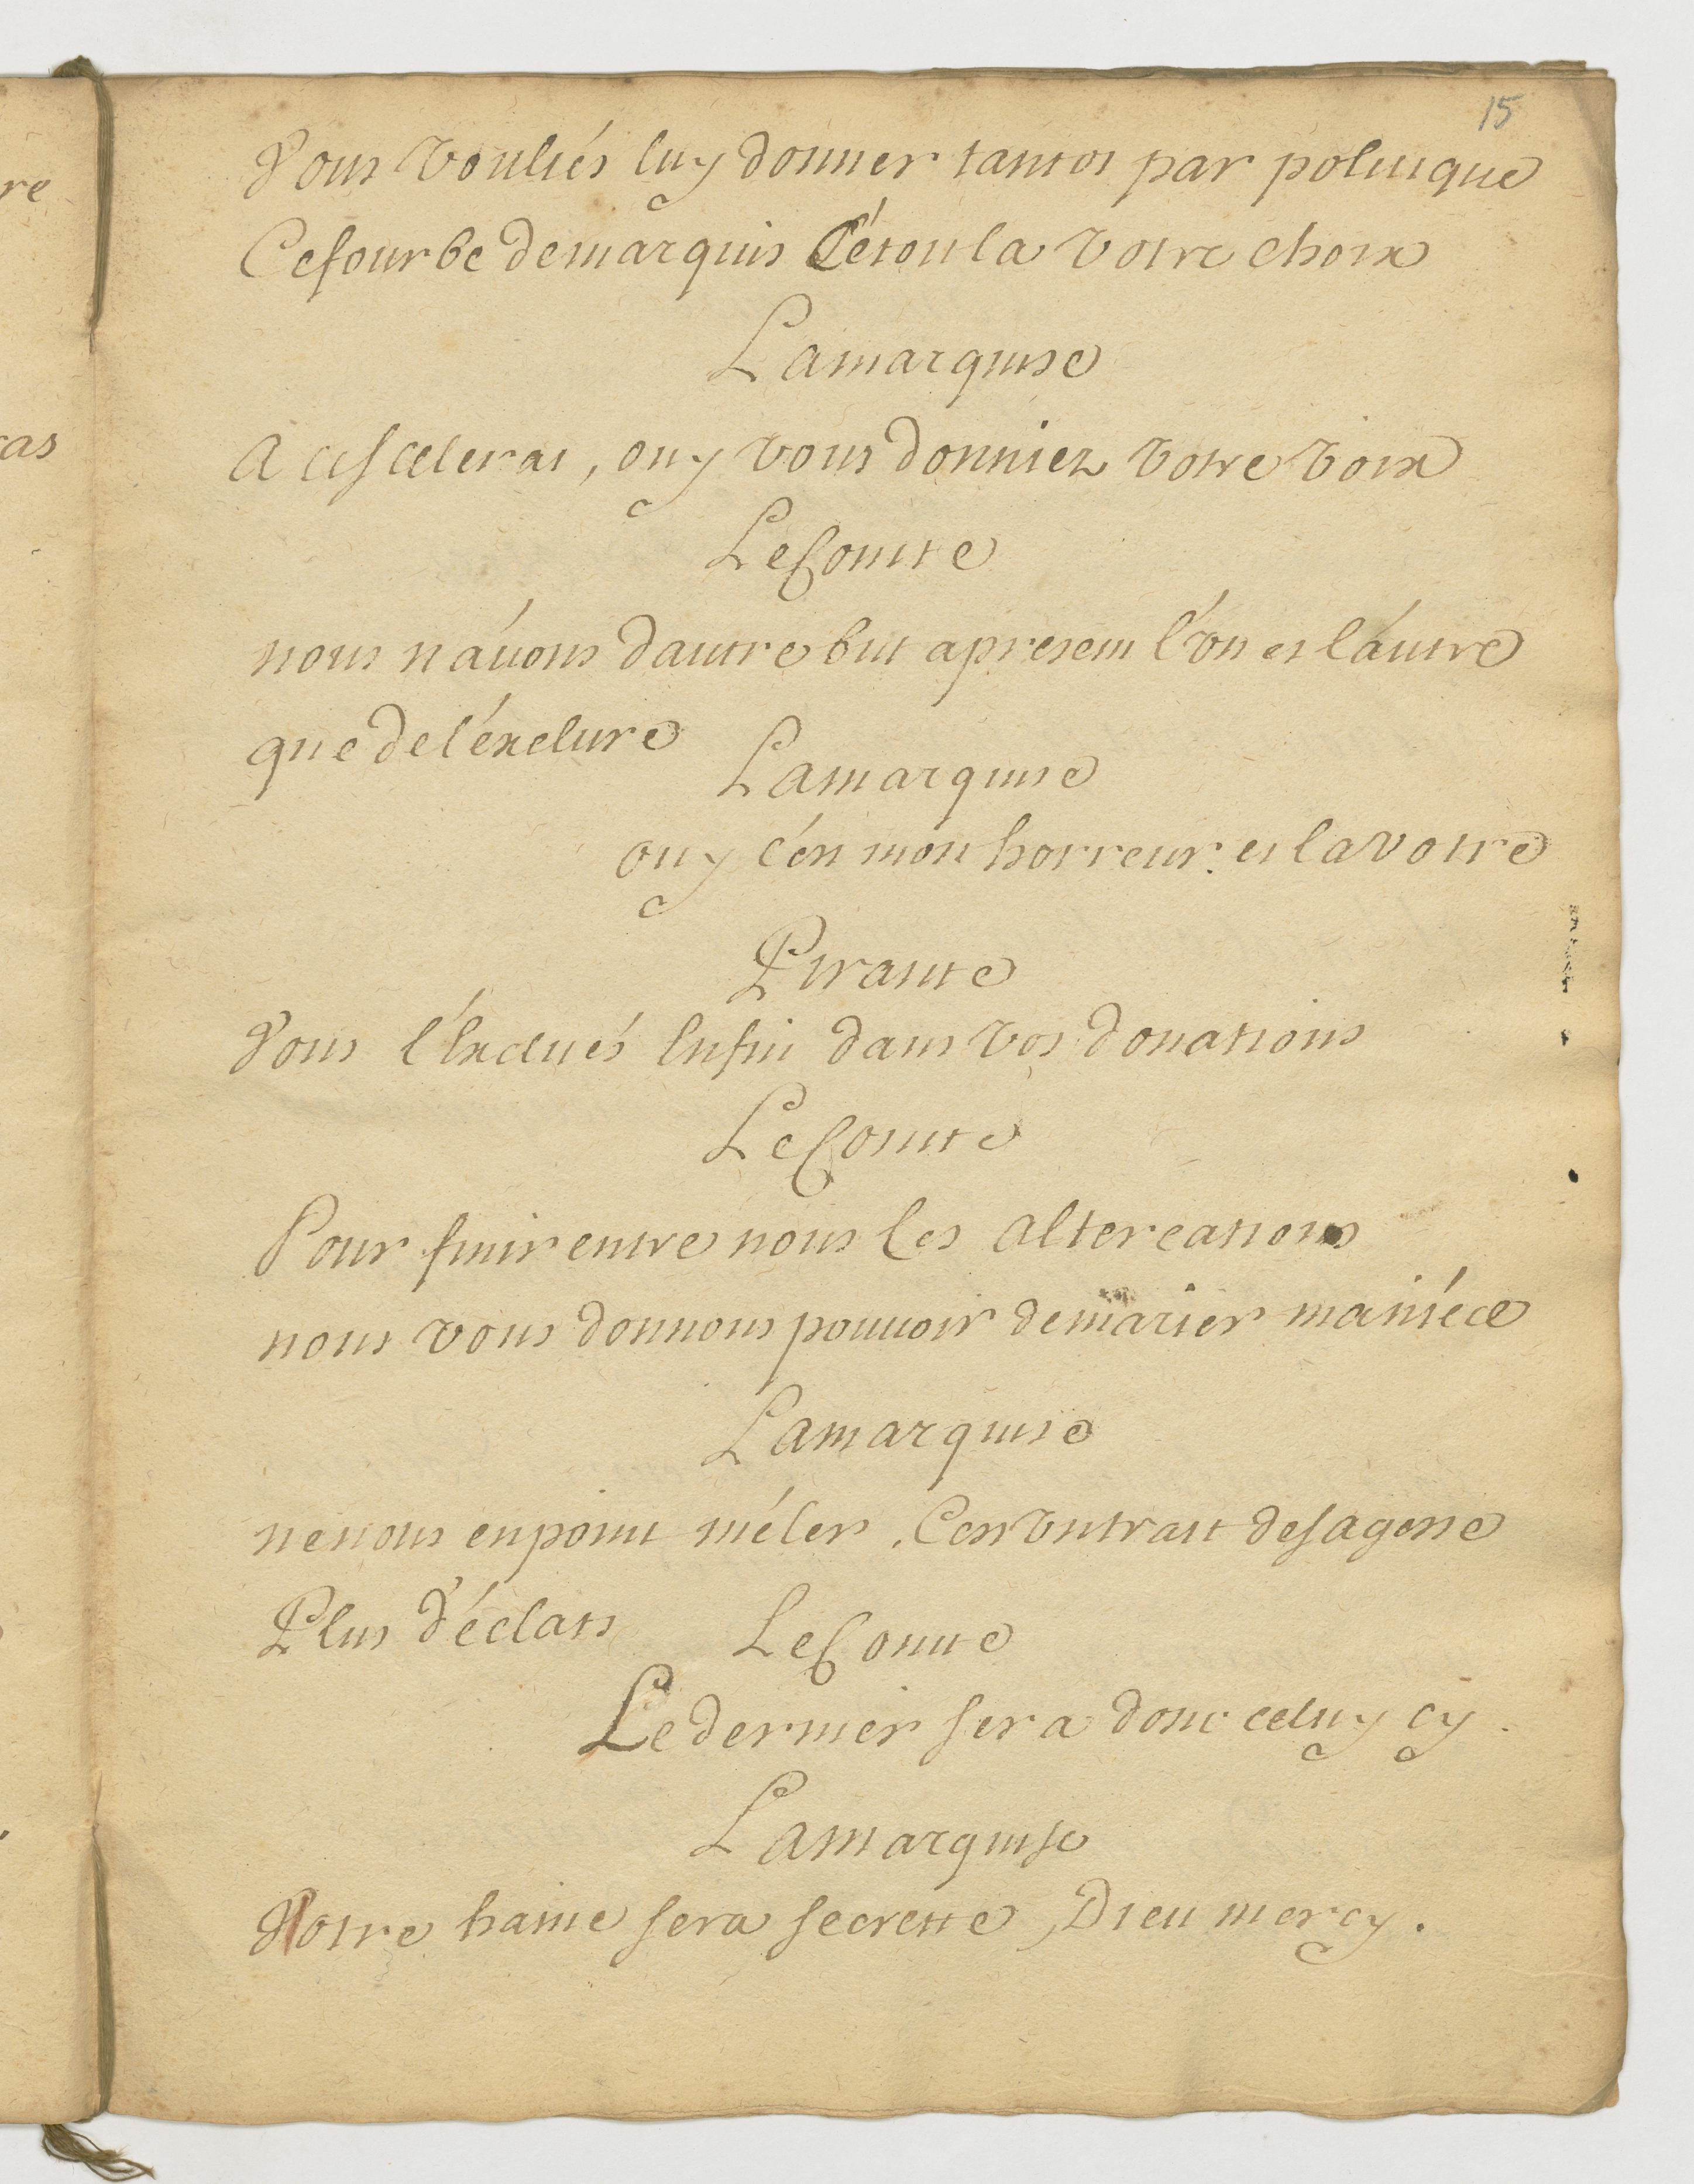 15
re
Vous vouliés luy donner tantot par politique
Ce fourbe de marquis C'étoit la votre choix
La marquise
cas
A ce scelerat, ouy vous donniez votre voix
Le Comte
nous n'avons dautre but apresent l'on et l'autre
que de l'éxclure
La marquise
ouy c'est mon horreur et la votre
Pirante
Vous l'Exclués Enfin dans vos donations
Le Comte
Pour finir entre nous les altercations
nous vous donnons pouvoir de marier ma niéce
La marquise
ne nous en point méler. C'est un trait de sagesse
Plus d'éclats
Le Comte
Le dernier sera donc celuy cy.
La marquise
Notre haine sera secrette, Dieu mercy.